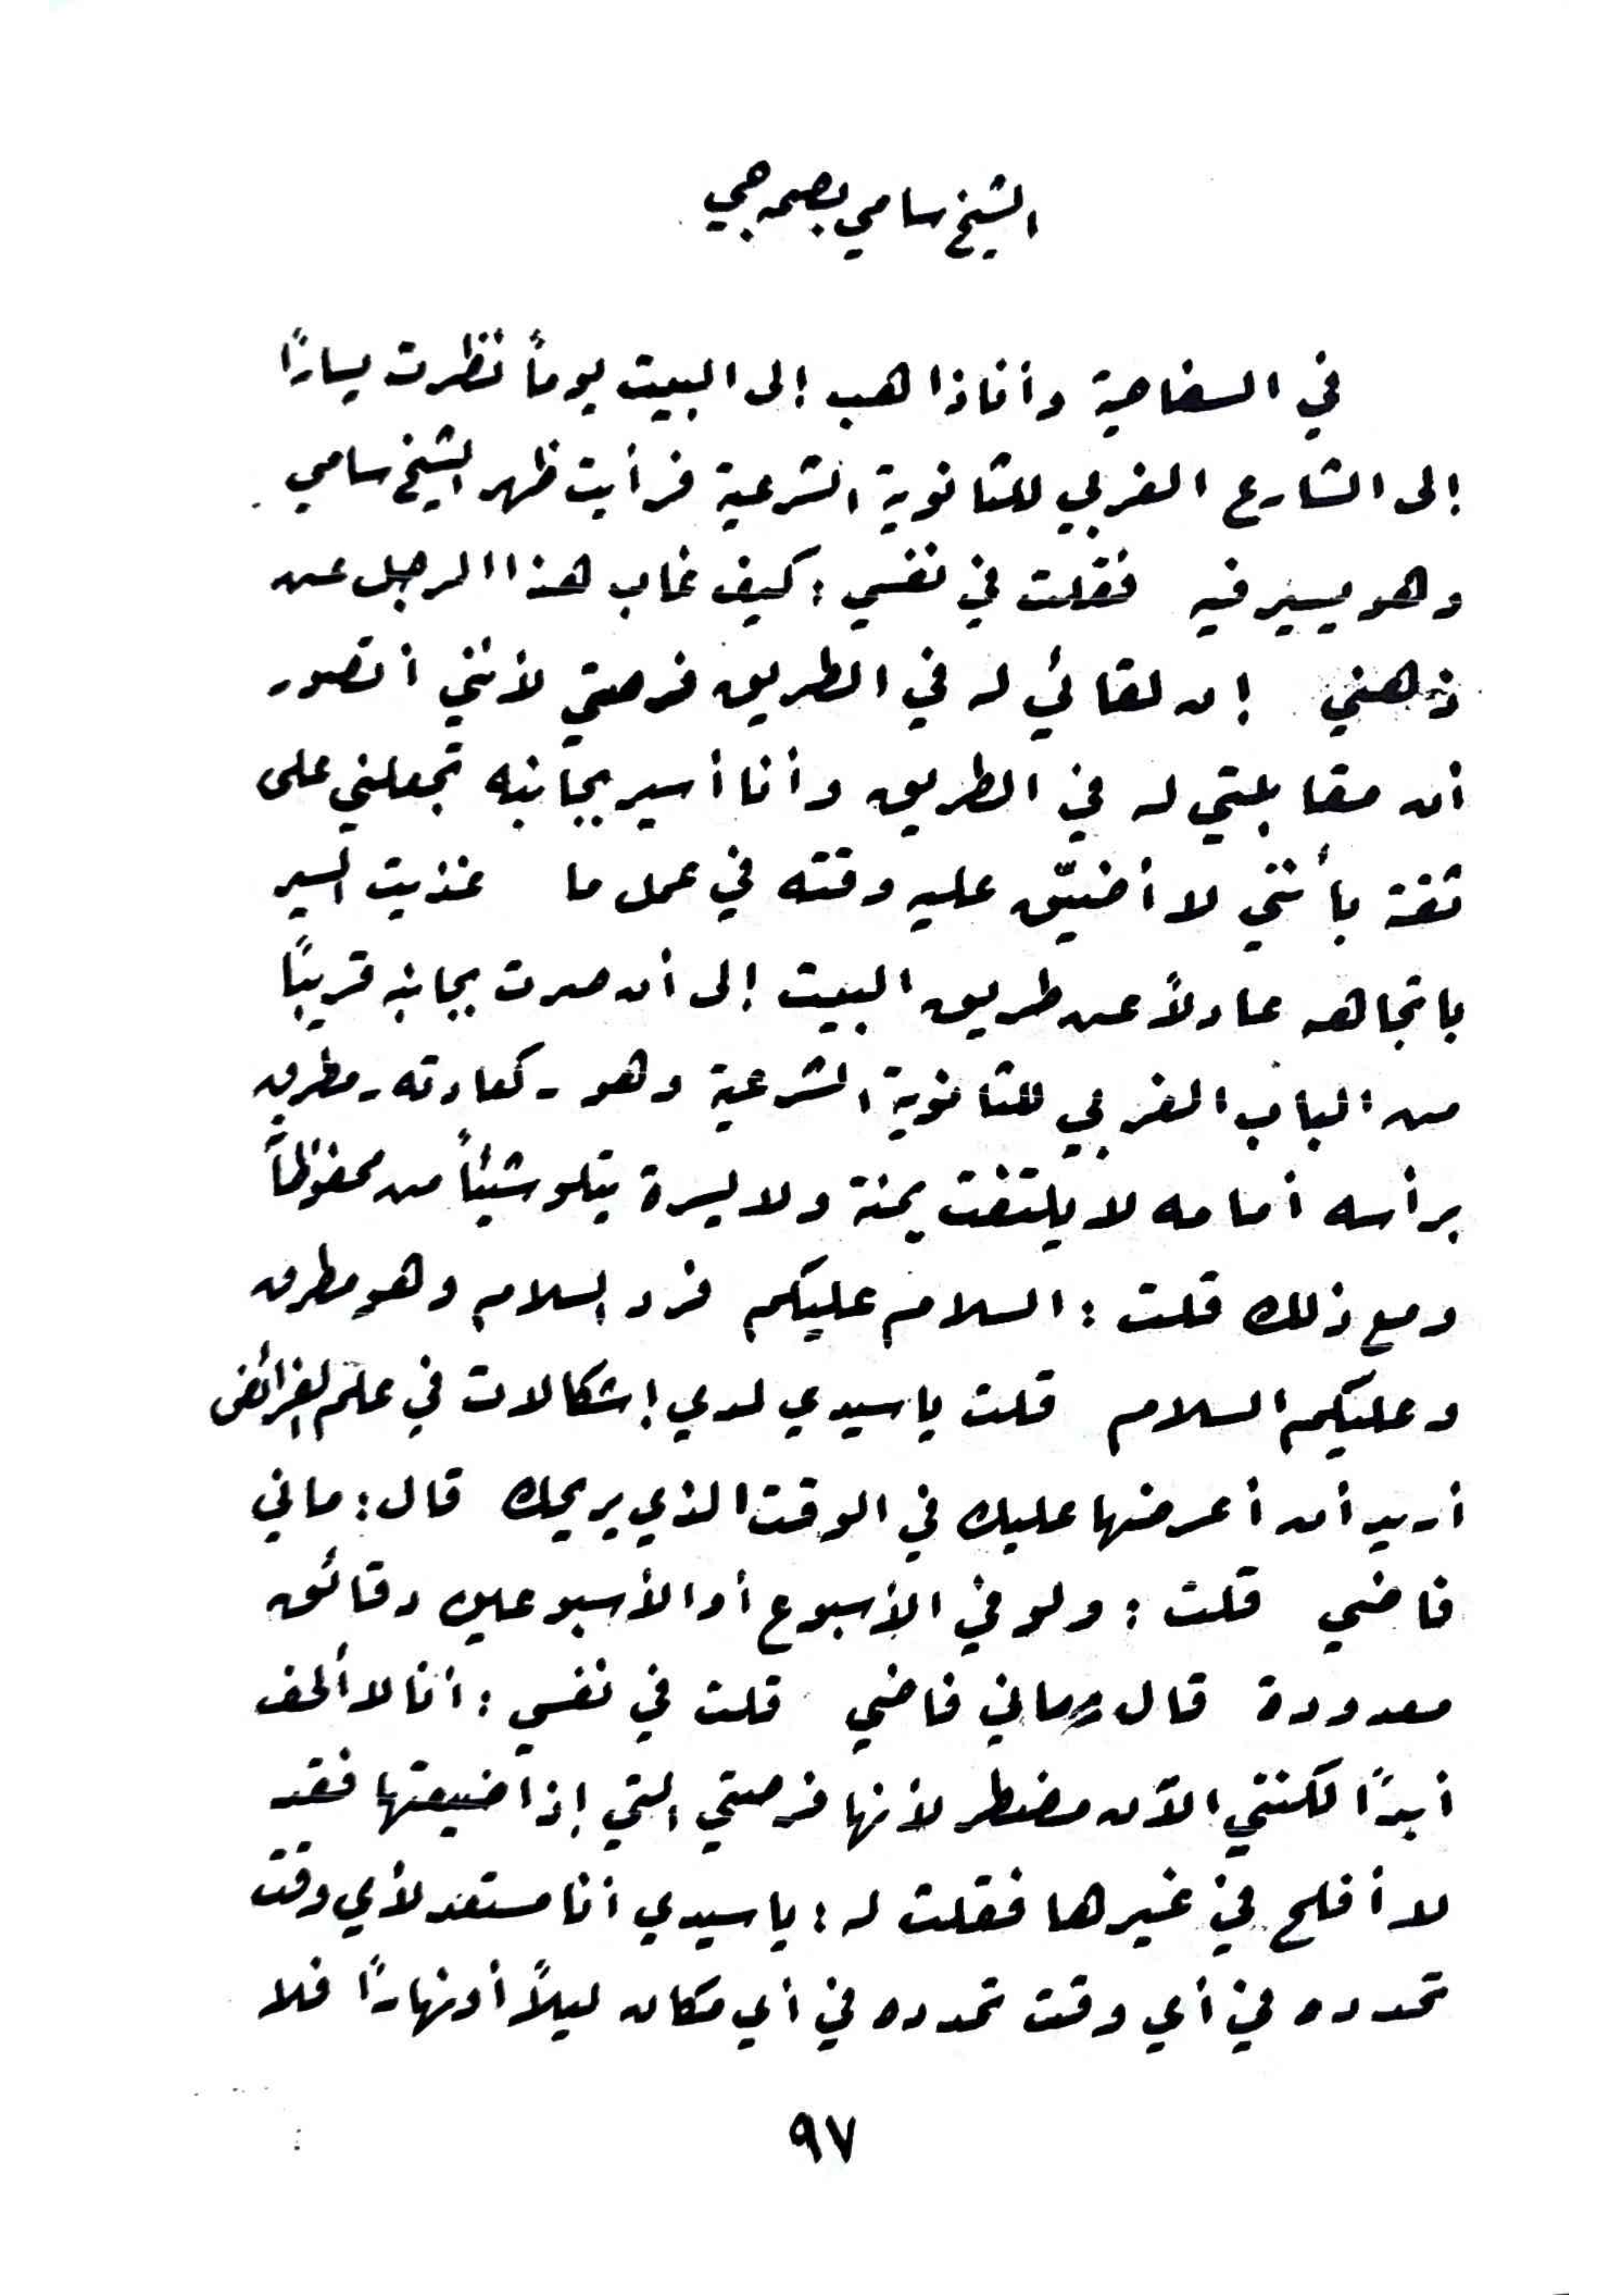 الشيخ سامي بصمه جي
في السفاحية وأنا ذاهب إلى البيت يوماً نظرت يسارًا
إلى الشارع الغربي للثانوية الشرعية فرأيت ظهر الشيخ سامي
وهو يسير فيه فقلت في نفسي : كيف غاب هذا الرجل عن
ذهني إن لقائي له في الطريق فرصتي لأنني أتصور
أن مقابلتي له في الطريق وأنا أسير بجانبه تجعلني على
ثقة بأنني لا أضيّق عليه وقته في عمل ما فذيت السير
باتجاهه عادلاً عن طريق البيت إلى أن صرت بجانبه قريبًا
من الباب الغربي للثانوية الشرعية وهو - كعادته - مطرق
برأسه أمامه لا يلتفت يمنة ولا يسرة يتلو شيئاً من محفوظاته
ومع ذلك قلت : السلام عليكم فرد السلام وهو مطرق
وعليكم السلام قلت يا سيدي لدي إشكالات في علم الفرائض
أريد أن أعرضها عليك في الوقت الذي يريحك قال : ماني
فاضي قلت : ولو في الأسبوع أو الأسبوعين دقائق
معدودة قال ماني فاضي قلت في نفسي : أنا لا ألحف
أبدًا لكنني الآن مضطر لأنها فرصتي التي إذا ضيعتها فقد
لا أفلح في غيرها فقلت له : يا سيدي أنا مستعد لأي وقت
تحدده في أي وقت تحدده في أي مكان ليلاً أو نهارًا فلا
٩٧